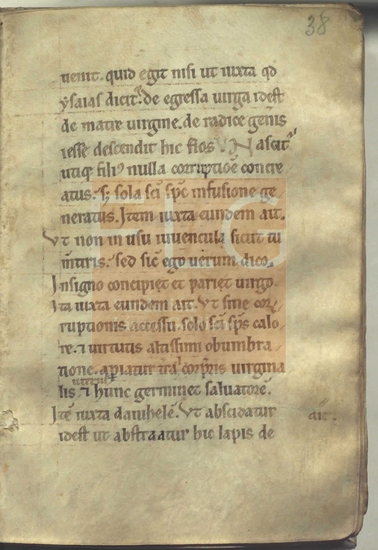 38
uenit. quid egit nisi ut iuxta qd
ysaias dicit. de egessa uirga idest
de matre uirgine. de radice genis
iesse descendit hic flos. Nascit
utiq; fili9 nulla corruptiõe concre
atus. s; sola sci spc infusione ge
neratus. Item iuxta eundem ait.
Vt non in usu iuuencula sicut tu
mtiris. Sed sic ego uerum dico.
Insigno concipiet et pariet uirgo.
Ita iuxta eundem ait. Vt sine cor
ruptionis accessu. solo sci sps calo
re. & uirtutis altissimi obumbra
tione. apiatur tra corpris uirgina
lis. & hunc germinet saluatorē.
Itē iuxta danihelē. Vt abscidatur ait.
idest ut abstraatur hic lapis de